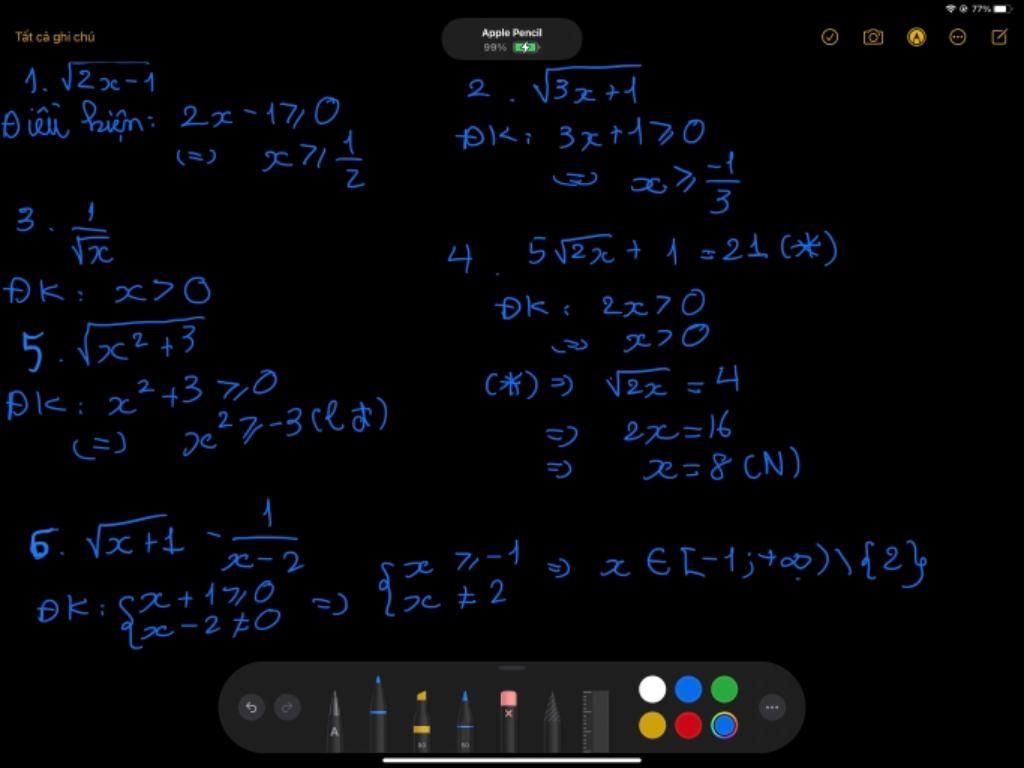 77%
Tất cả ghi chú
Apple Pencil
99%
1. √(2x-1)
Điều kiện: 2x - 1 ⩾ 0
(=) x ⩾ 1/2
2. √(3x+1)
ĐK: 3x+1 ⩾ 0
(=) x ⩾ -1/3
3. 1/√x
ĐK: x > 0
4. 5√(2x) + 1 = 21 (*)
ĐK: 2x > 0
(=) x > 0
(*) => √(2x) = 4
=> 2x = 16
=> x = 8 (N)
5. √(x² + 3)
ĐK: x² + 3 ⩾ 0
(=) x² ⩾ -3 (lđ)
6. √(x+1) - 1/(x-2)
ĐK: { x + 1 ⩾ 0 => { x ⩾ -1 => x ∈ [-1; +∞) \ {2}
x - 2 ≠ 0 x ≠ 2
A
80
50